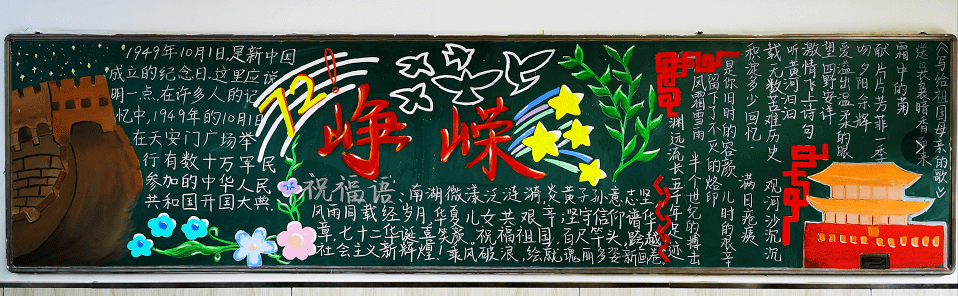 1949年10月1日,是新中国
成立的纪念日.这里应该
明一点,在许多人的记
忆中,1949年的10月1日
在天安门广场举
行有数十万军民
参加的中华人民
共和国开国大典.
72!
峥嵘
祝福语:南湖微漾泛涟漪,炎黄子孙意志坚
风雨同载经岁月,华夏儿女共艰辛;坚守信仰谱华
章,七十二华诞喜笑颜。祝福祖国,百尺竿头,跨越
社会主义新辉煌!乘风破浪,绘就瑰丽多姿新画卷。
《写给祖国母亲的歌》
送
霜中的菊
献片片芳菲
吻夕阳余辉
爱溢出温柔的眼
望四野安详
激情飞上诗句
听黄河汩汩
载无数苦难历史
观河沙沉沉
积淀多少回忆
满目疮痍
是你旧时的容颜
儿时的艰辛
留下了不灭的烙印
半个世纪的搏击
风福雷雨
渊远流长
五千年足迹